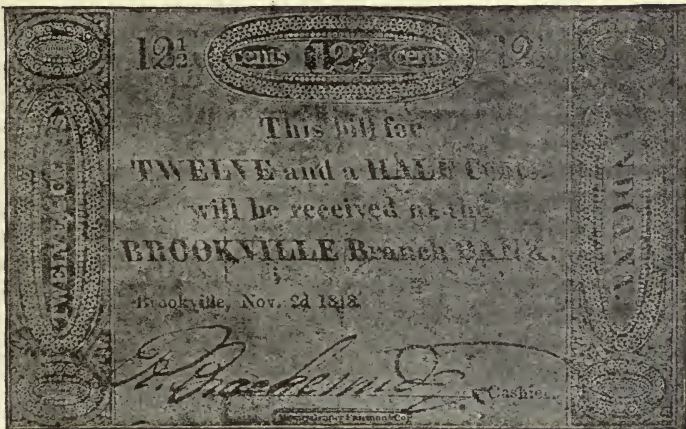 12½ cents 12½ cents 12
This bill for
TWELVE and a HALF Cents
will be received at the
BROOKVILLE Branch BANK.
Brookville, Nov. 2d 1818.
Cashier.
INDIANA